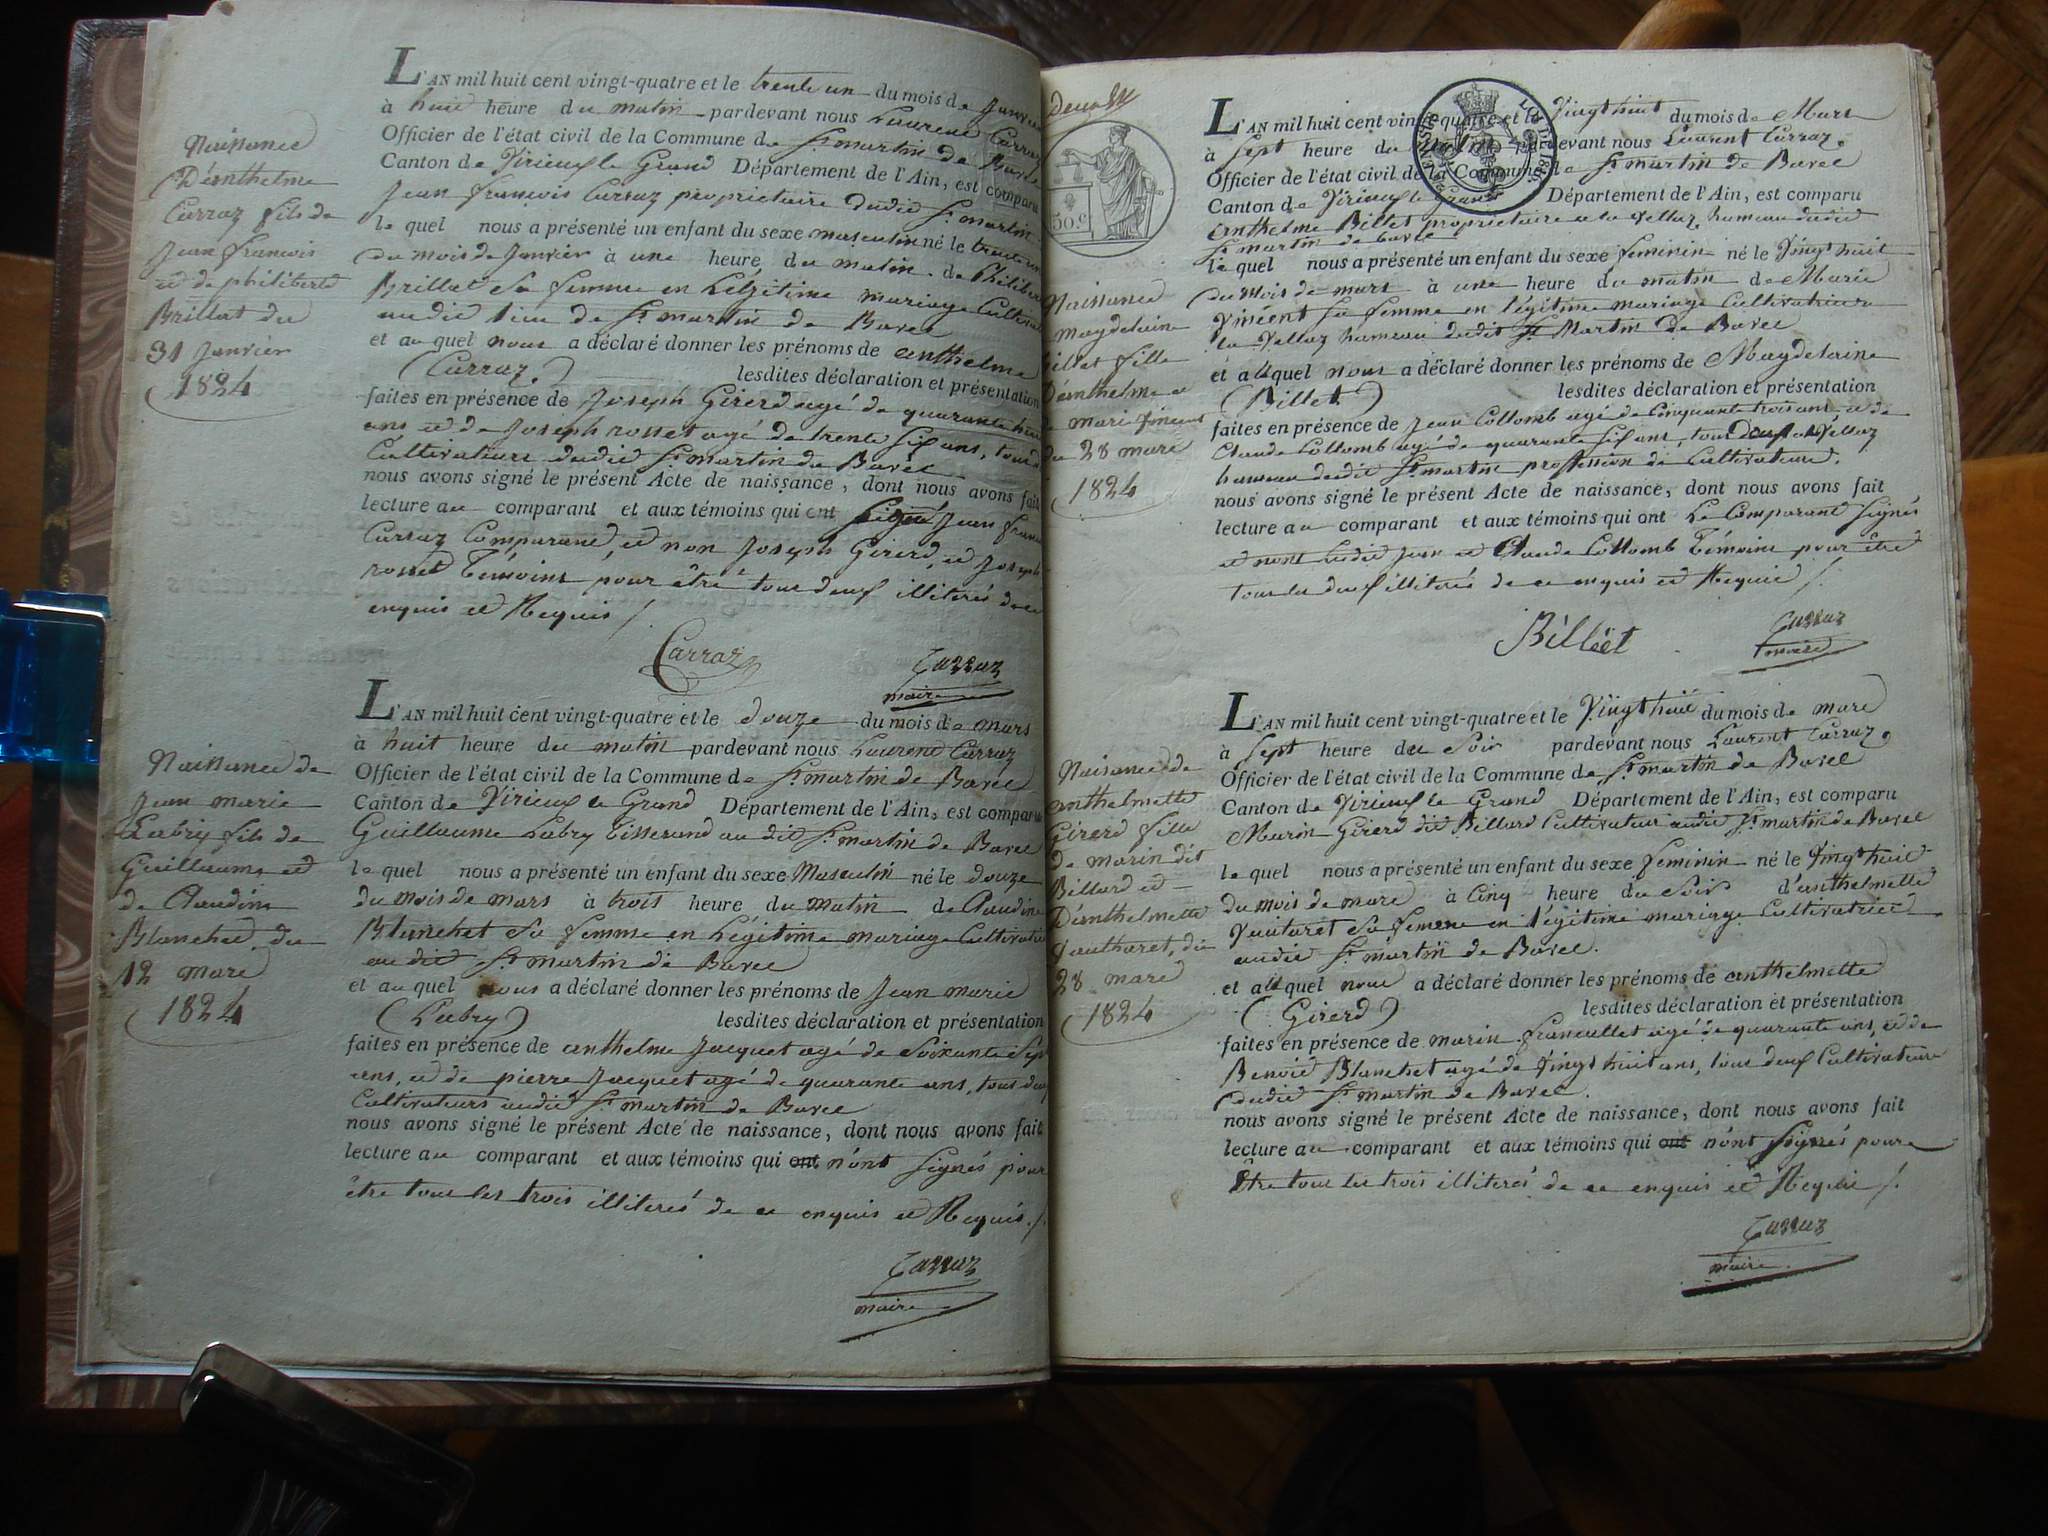 Naissance
D'anthelme
Carraz fils de
Jean francois
et de philiberte
Brillat du
31 Janvier
1824
L'AN mil huit cent vingt-quatre et le trente un du mois de Janvier
à huit heure du matin pardevant nous Laurent Carraz
Officier de l'état civil de la Commune de St martin de Bavel
Canton de Virieux le Grand Département de l'Ain, est comparu
Jean francois Carraz proprietaire dudit St martin
le quel nous a présenté un enfant du sexe masculin né le trente un
du mois de Janvier à une heure du matin de Philiberte
Brillat Sa femme en Légitime mariage Cultivat
audit lieu de St martin de Bavel
et au quel nous a déclaré donner les prénoms de anthelme
(Carraz) lesdites déclaration et présentation
faites en présence de Joseph Girerd agé de quarante huit
ans et de Joseph rosset agé de trente Six ans, tous d
Cultivateurs dudit St martin de Bavel
nous avons signé le présent Acte de naissance, dont nous avons fait
lecture au comparant et aux témoins qui ont Signé Jean Francois
Carraz Comparant, et non Joseph Girerd, et Joseph
rosset Témoins pour être tous deux illiterés de ce
enquis et Requis /.
Carraz
Carraz
maire
Naissance de
Jean marie
Labry fils de
Guillaume et
de Claudine
Blanchet, du
12 mars
1824
L'AN mil huit cent vingt-quatre et le douze du mois de mars
à huit heure du matin pardevant nous Laurent Carraz
Officier de l'état civil de la Commune de St martin de Bavel
Canton de Virieux le Grand Département de l'Ain, est comparu
Guillaume Labry Tisserand au dit St martin de Bavel
le quel nous a présenté un enfant du sexe Masculin né le douze
du mois de mars à trois heure du matin de Claudine
Blanchet Sa femme en Légitime mariage Cultivatri
audit St martin de Bavel
et au quel nous a déclaré donner les prénoms de Jean marie
(Labry) lesdites déclaration et présentation
faites en présence de anthelme Jacquet agé de Soixante Sept
ans, et de pierre Jacquet agé de quarante ans, tous deux
Cultivateurs audit St martin de Bavel
nous avons signé le présent Acte de naissance, dont nous avons fait
lecture au comparant et aux témoins qui ont n'ont Signés pour
être tous les trois illiterés de ce enquis et Requis /.
Carraz
maire
50 c.
Naissance
magdelaine
illet fille
D'anthelme et
marie Vincent
du 28 mars
1824
L'AN mil huit cent vingt-quatre et le Vingt huit du mois de Mars
à Sept heure du matin pardevant nous Laurent Carraz
Officier de l'état civil de la Commune de St martin de Bavel
Canton de Virieux le Grand Département de l'Ain, est comparu
anthelme Billet proprietaire a la Vellaz hameau dudit
St martin de bavel
le quel nous a présenté un enfant du sexe feminin né le Vingt huit
du mois de mars à une heure du matin de Marie
Vincent Sa femme en légitime mariage Cultivatrice a
la Vellaz hameau dudit St Martin de Bavel
et au quel nous a déclaré donner les prénoms de Magdelaine
(Billet) lesdites déclaration et présentation
faites en présence de Jean Collomb agé de Cinquante trois ans et de
Claude Collomb agé de quarante Six ans, tous deux a la Vellaz
hameau dudit St martin profession de Cultivateurs.
nous avons signé le présent Acte de naissance, dont nous avons fait
lecture au comparant et aux témoins qui ont Le Comparant Signés
et nont Ledit Jean et Claude Collomb Témoins pour être
tous les deux illiterés de ce enquis et Requis /.
Billet
Carraz
maire
Naissance de
anthelmette
Girerd fille
de marin dit
Billard et
D'anthelmette
Vautaret, du
28 mars
1824
L'AN mil huit cent vingt-quatre et le Vingt huit du mois de mars
à Sept heure du Soir pardevant nous Laurent Carraz
Officier de l'état civil de la Commune de St martin de Bavel
Canton de Virieux le Grand Département de l'Ain, est comparu
Marin Girerd dit Billard Cultivateur audit St martin de Bavel
le quel nous a présenté un enfant du sexe feminin né le Vingt huit
du mois de mars à Cinq heure du Soir d'anthelmette
Vautaret Sa femme en légitime mariage Cultivatrice
audit St martin de Bavel.
et au quel nous a déclaré donner les prénoms de anthelmette
(Girerd) lesdites déclaration et présentation
faites en présence de marin francillet agé de quarante ans, et de
Benoit Blanchet agé de Vingt huit ans, tous deux Cultivateurs
dudit St martin de Bavel.
nous avons signé le présent Acte de naissance, dont nous avons fait
lecture au comparant et aux témoins qui ont n'ont Signés pour
Être tous les trois illiterés de ce enquis et Requis /.
Carraz
maire